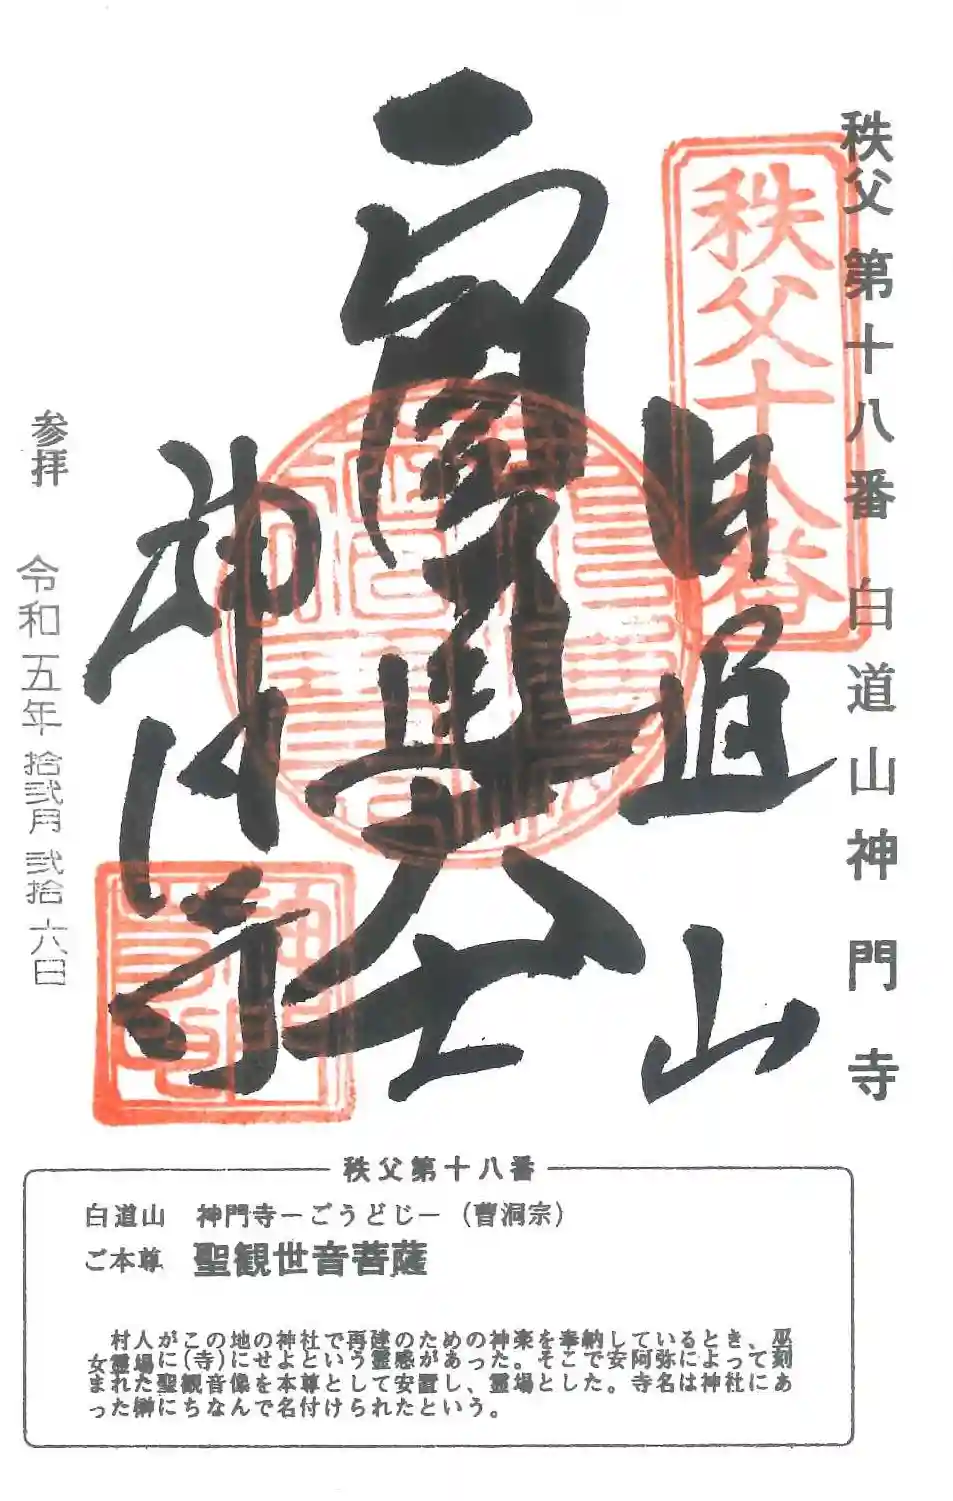 秩父第十八番 白道山神門寺
秩父十八番
白道山
神門寺
参拝 令和五年拾弐月弐拾六日
秩父第十八番
白道山 神門寺－ごうどじ－（曹洞宗）
ご本尊 聖観世音菩薩
村人がこの地の神社で再建のための神楽を奉納しているとき、巫
女霊場に(寺)にせよという霊感があった。そこで安阿弥によって刻
まれた聖観音像を本尊として安置し、霊場とした。寺名は神社にあ
った榊にちなんで名付けられたという。